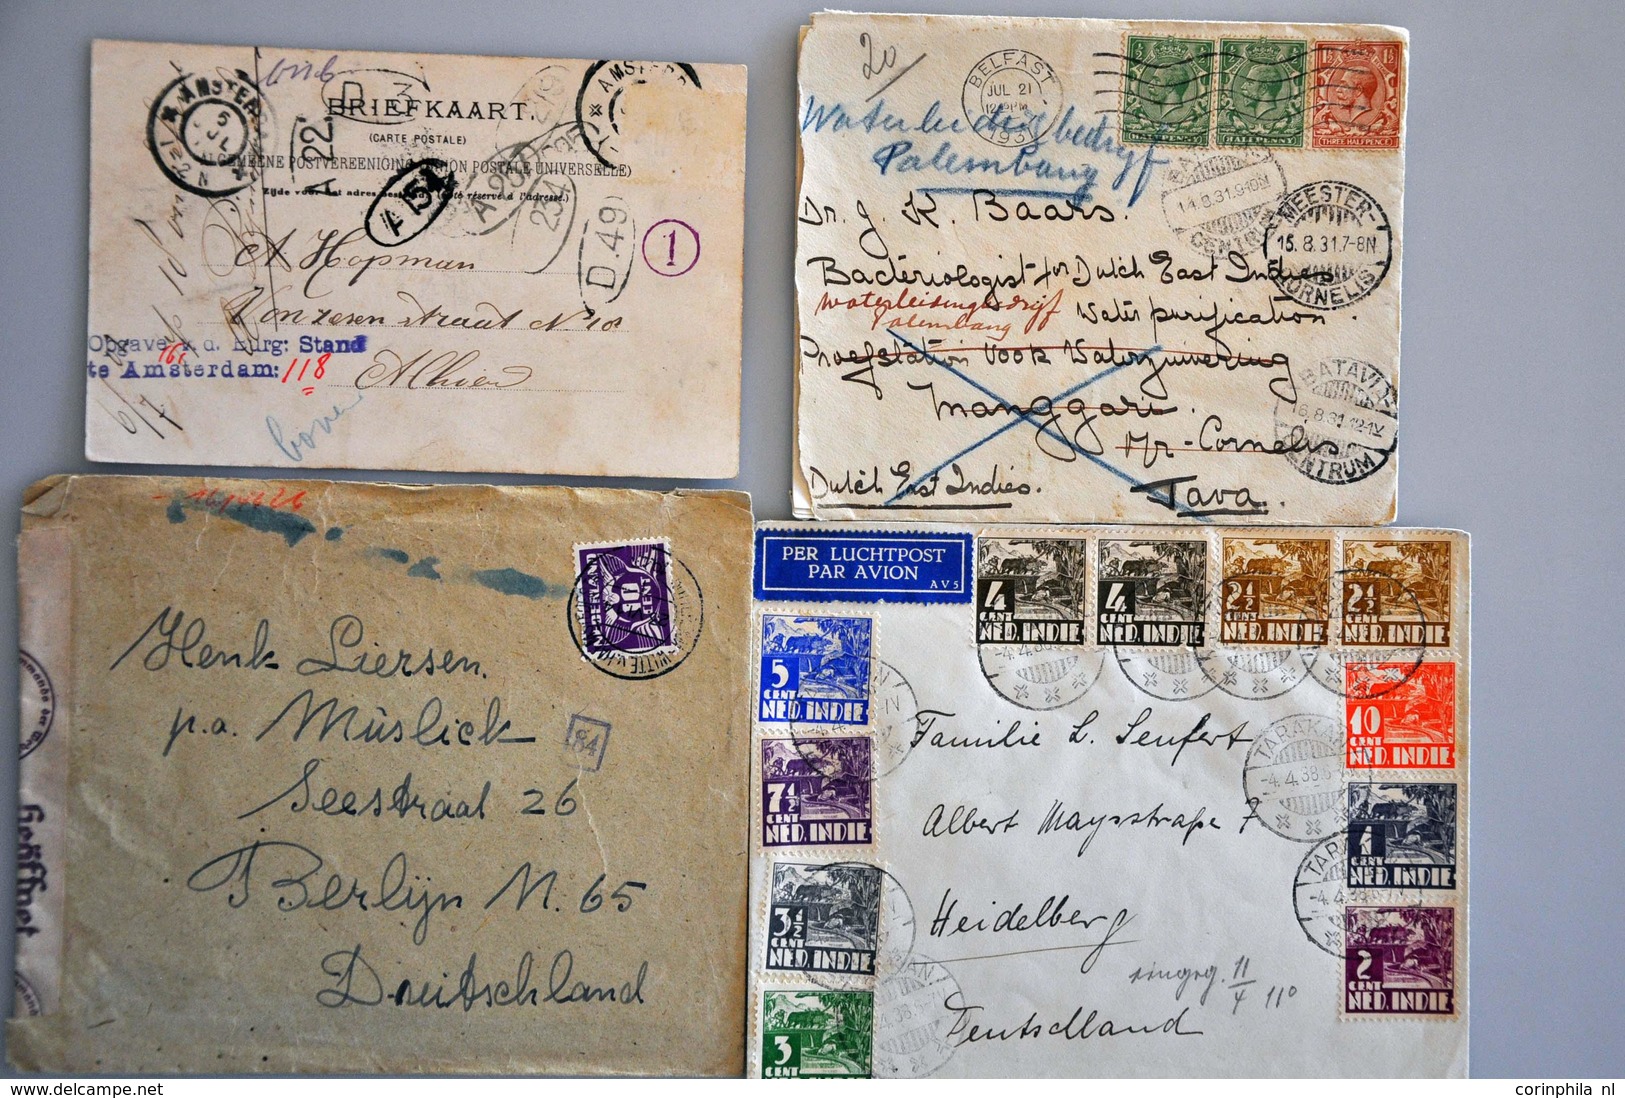 BRIEFKAART.
(CARTE POSTALE)
ALGEMEENE POSTVEREENIGING (UNION POSTALE UNIVERSELLE)
Zijde voor het adres bestemd. (Côté réservé à l'adresse.)
A 22
A 154
D.49
1
A Hopman
Opgave v. d. Burg: Stand
te Amsterdam: 118
6/7
20
BELFAST
JUL 21
1931
THREE HALFPENCE
Waterleidingbedrijf
Palembang
14.8.31.9-10N
CENTRUM
MEESTER-
15.8.31.7-8N
CORNELIS
Dr. J. K. Baars.
Bacteriologist for Dutch East Indies
Waterleidingbedrijf
Palembang
Water purification.
Proefstation voor Waterzuivering
Manggarai.
Mr-Cornelis.
Dutch East Indies.
Java.
BATAVIA
16.8.31.12-1V
CENTRUM
NEDERLAND
10
CENT
Henk Liersen.
p.a. Müslick
84
Seestraat 26
Berlijn N. 65
Duitschland
Geöffnet
PER LUCHTPOST
PAR AVION
AV5
4 CENT NED. INDIE
4 CENT NED. INDIE
2½ CENT NED. INDIE
2½ CENT NED. INDIE
5 CENT NED. INDIE
10 CENT NED. INDIE
7½ CENT NED. INDIE
1 CENT NED. INDIE
3½ CENT NED. INDIE
2 CENT NED. INDIE
3 CENT NED. INDIE
TARAKAN
-4.4.38
Familie L. Seufert
Albert Maysstraße 7
Heidelberg
eingeg. 11/4 11°
Deutschland
corinphila nl